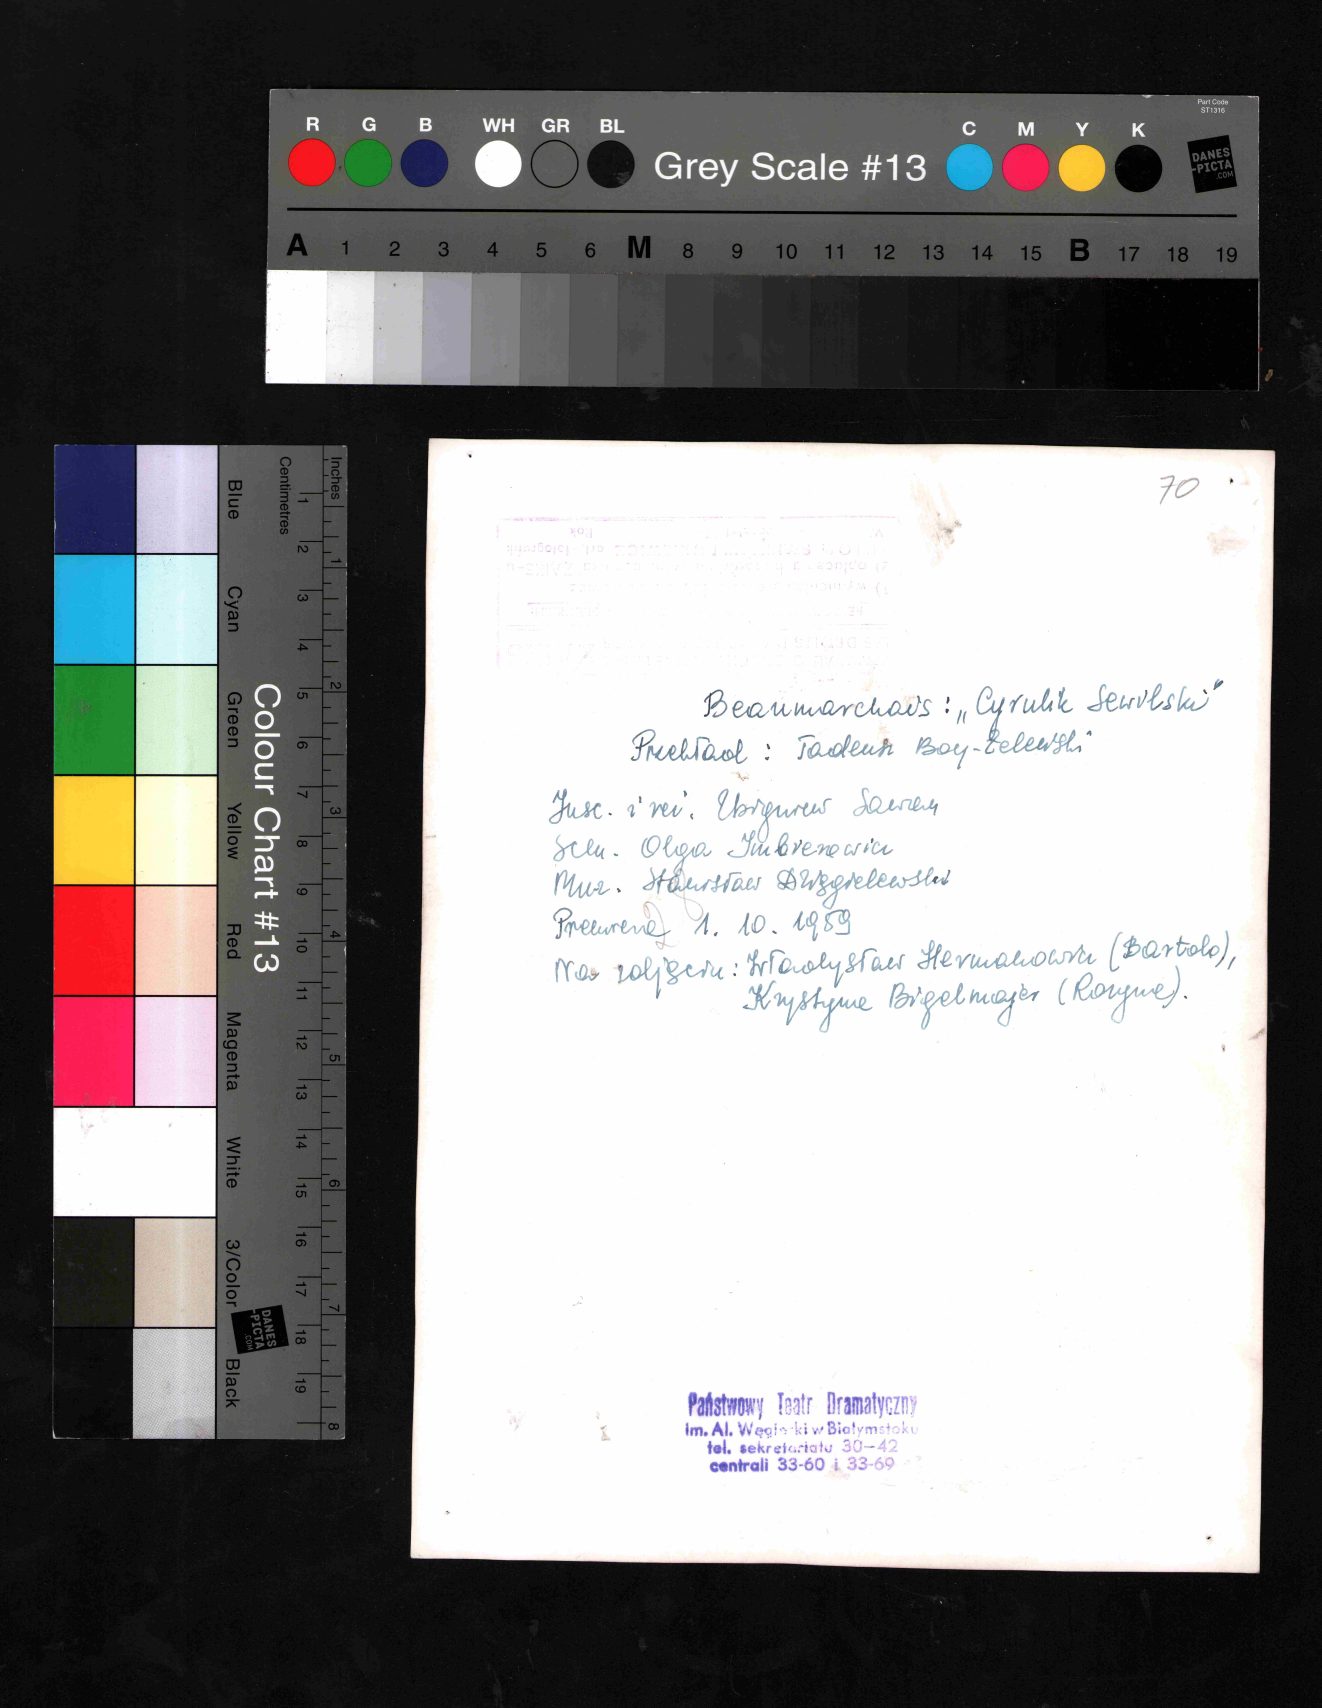 Part Code
ST1316
R G B WH GR BL
Grey Scale #13
C M Y K
DANES
-PICTA
.COM
A 1 2 3 4 5 6 M 8 9 10 11 12 13 14 15 B 17 18 19
Inches
Centimetres
1 2 3 4 5 6 7 8 9 10 11 12 13 14 15 16 17 18 19
1 2 3 4 5 6 7 8
Colour Chart #13
Blue
Cyan
Green
Yellow
Red
Magenta
White
3/Color
Black
DANES
-PICTA
.COM
70
Beaumarchais: „Cyrulik Sewilski"
Przekład: Tadeusz Boy-Żeleński
Insc. i reż. Zbigniew Sawan
Scen. Olga
Muz. Stanisław Dzięgielewski
Premiera 1. 10. 1959
Na zdjęciu: Władysław Hermanowicz (Bartolo),
Krystyna Bigelmajer (Rozyna).
Państwowy Teatr Dramatyczny
im. Al. Węgierki w Białymstoku
tel. sekretariatu 30-42
centrali 33-60 i 33-69